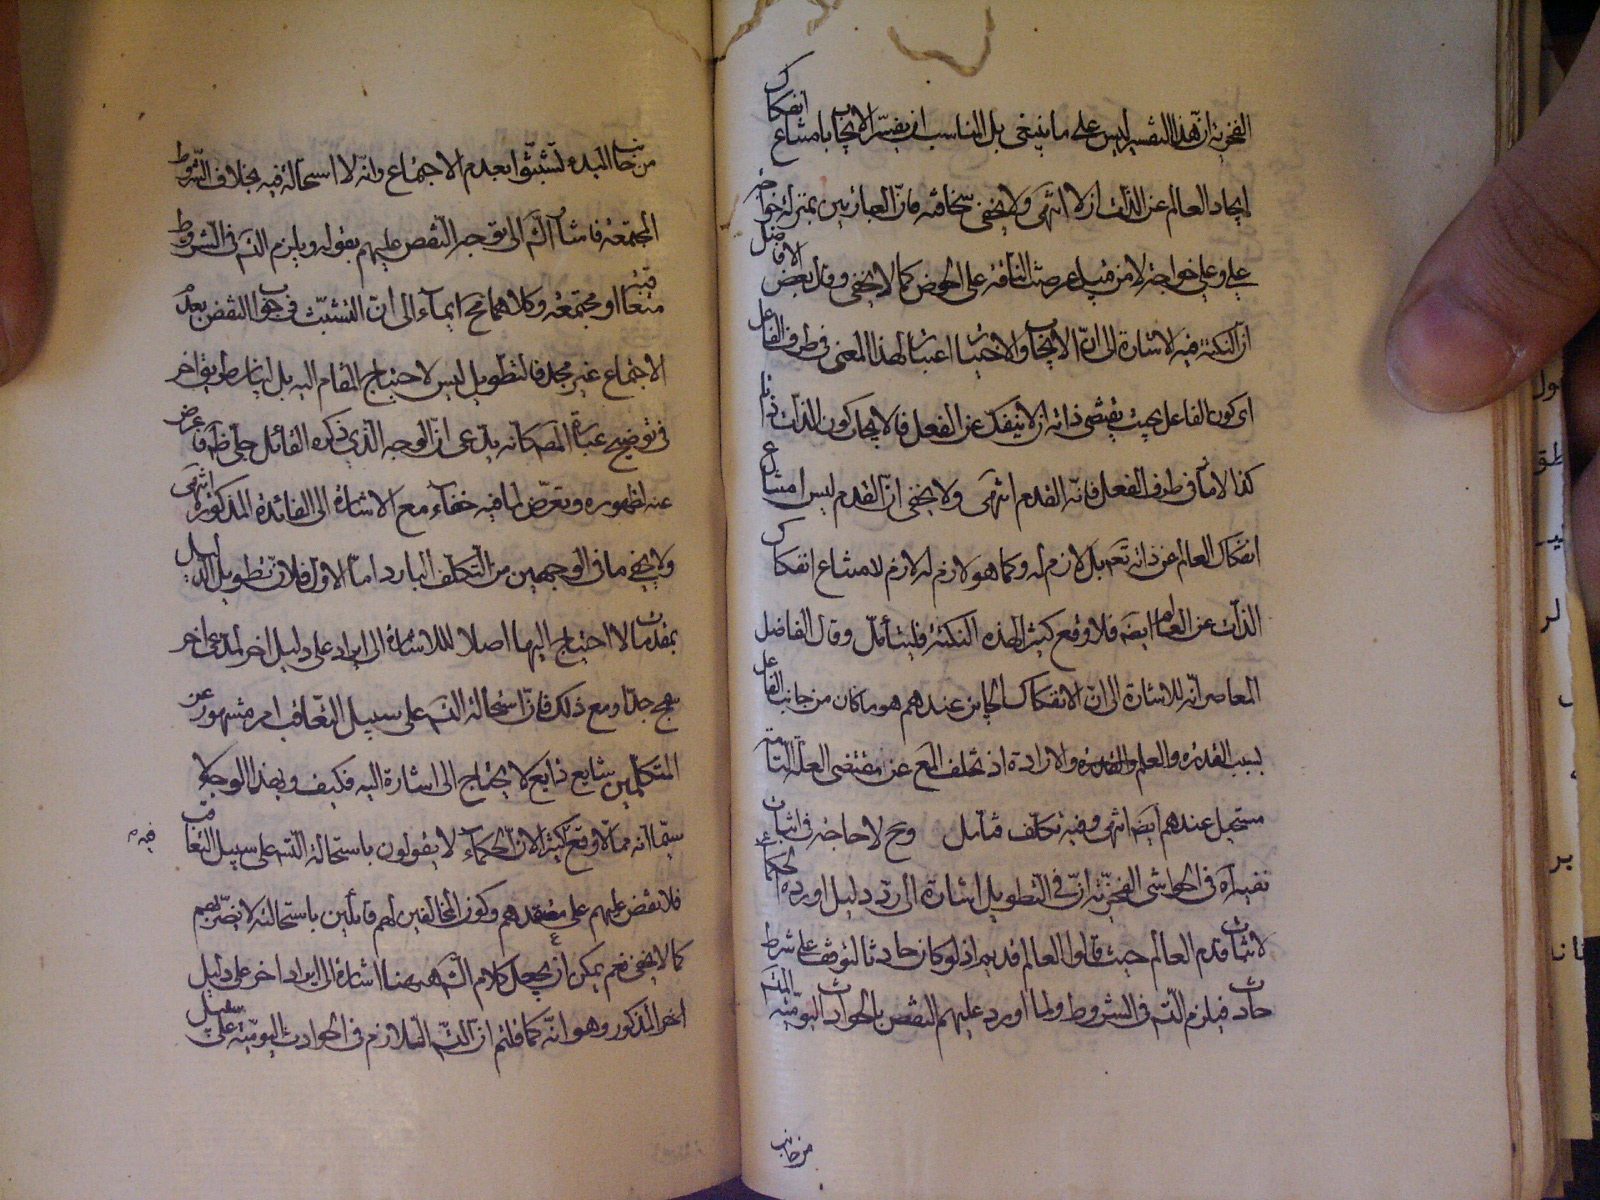 الفخرية ان هذا التفسير ليس على ما ينبغي بل المناسب ان يفسر الايجاب بامتناع انفكاك
ايجاد العالم عن الذات ازلا انتهى ولا يخفى سخافته فان العبارتين بمنزلة خواجه
علي وعلي خواجه لا من قبيل عرضت الناقة على الحوض كما لا يخفى وقال بعض الافاضل
ان النكتة فيه الاشارة الى ان الايجاب والاختيار اعتبار لهذا المعنى في طرف الفاعل
اي كون الفاعل بحيث يقتضي ذاته ان لا ينفك عن الفعل فالايجاب كون الذات
كذا لا ما في طرف الفعل فانه القدم انتهى ولا يخفى ان القدم ليس امتناع
انفكاك العالم عن ذاته تعم بل لازم له وكما هو لازم له لازم لامتناع انفكاك
الذات عن العالم ايضا فلا وقع كثير لهذه النكتة فليتأمل وقال الفاضل
المعاصر انه للاشارة الى ان الانفكاك الجايز عندهم هو ما كان من جانب الفاعل
بسبب القدرة والعلم والارادة اذ تخلف المع عن مقتضى العلة التامة
مستحيل عندهم ايضا انتهى وفيه تكلف فتأمل وح لا حاجة في اثبات
نفيه آه في الحواشي الفخرية ان في التطويل اشارة الى رد دليل اورده الحكماء
لاثبات قدم العالم حيث قالوا العالم قديم اذ لو كان حادثا لتوقف على شرط
حادث فيلزم التم في الشروط ولما اورد عليهم النقض بالحوادث اليومية
من جانب
من جانب المبدء تشبثوا بعدم الاجتماع وانه لا استحالة فيه بخلاف الشروط
المجتمعة فاشار الش الى توجه النقض عليهم بقوله ويلزم التم في الشروط
متعاقبة او مجتمعة وكلاهما مح ايماء الى ان التشبث في جواب النقض بعدم
الاجتماع غير مجد فالتطويل ليس لاحتياج المقام اليه بل
في توضيح عبارة المص كانه يدعي ان الوجه الذي ذكره القائل جلي ظ فاعرض
عنه لظهوره وتعرض لما فيه خفاء مع الاشارة الى الفائدة المذكورة انتهى
ولا يخفى ما في الوجهين من التكلف البارد اما الاول فلان تطويل الدليل
بمقدمات لا احتياج اليها اصلا للاشارة الى ايراد على دليل اخر لمدعى اخر
سمج جدا ومع ذلك فان استحالة التم على سبيل التعاقب امر مشهور عن
المتكلمين شايع ذايع لا يحتاج الى اشارة اليه فكيف وبهذا الوجه
سيما انه مما لا وقع كثير لان الحكماء لا يقولون باستحالة التم على سبيل التعاقب
فيه
فلا نقض عليهم على معتقدهم وكون المخالفين لهم قائلين باستحالته لا يضرهم
كما لا يخفى نعم يمكن ان يجعل كلام الش ههنا اشارة الى ايراد اخر على دليل
اخر المذكور وهو انه كما قلتم ان التم اللازم في الحوادث اليومية على سبيل